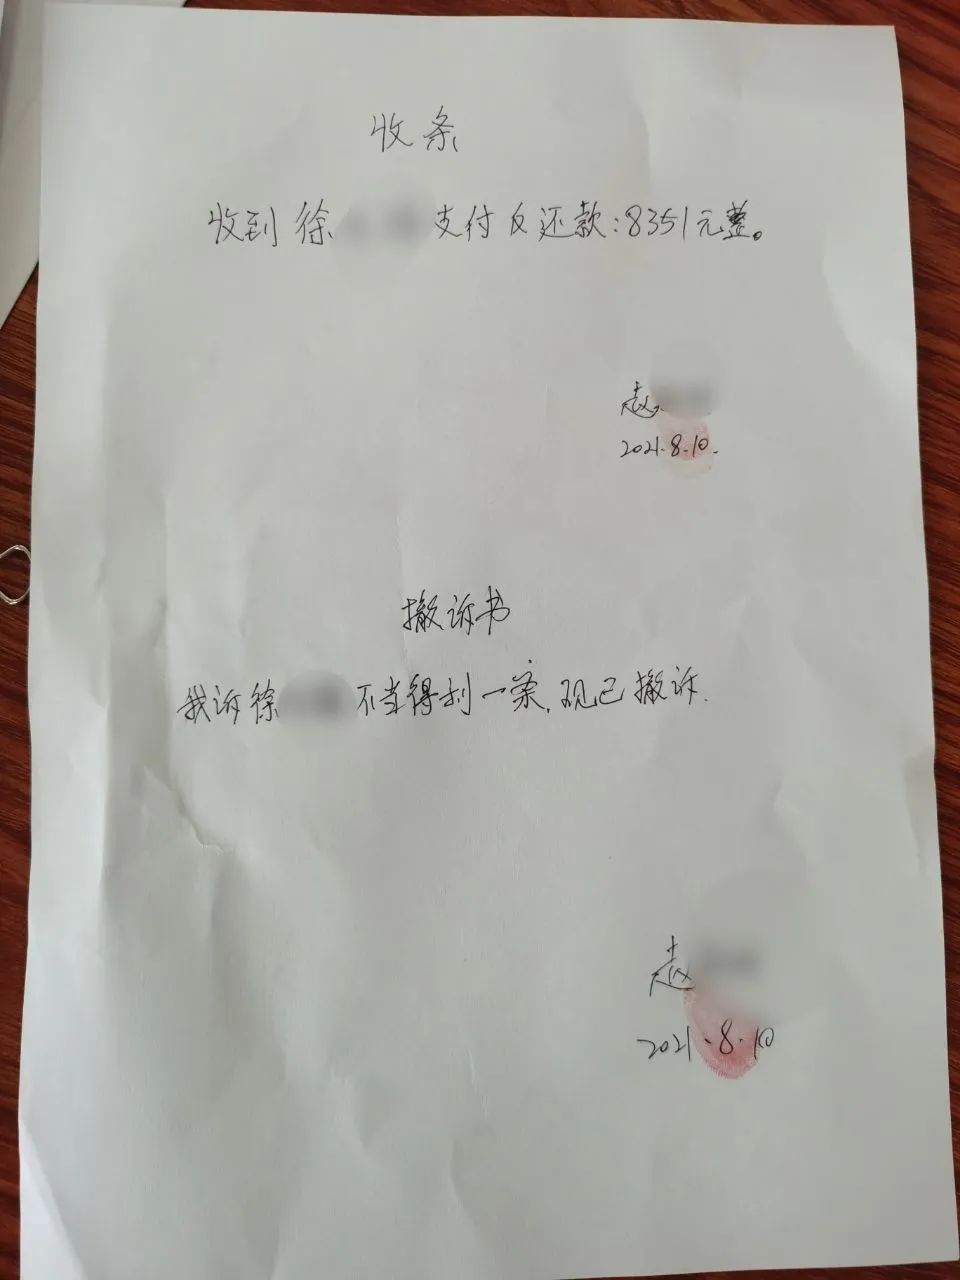 收条
收到徐 支付反还款:8351元整。
赵
2021.8.10.
撤诉书
我诉徐 不当得利一案,现已撤诉.
赵
2021.8.10